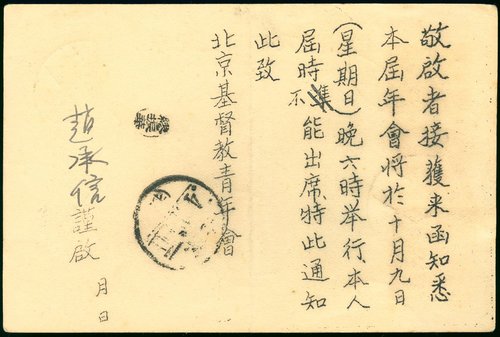 敬啟者接獲来函知悉
本屆年會将於十月九日
(星期日)晚六時举行本人
屆時不能出席特此通知
此致
北京基督教青年會
趙承信謹啟
月 日